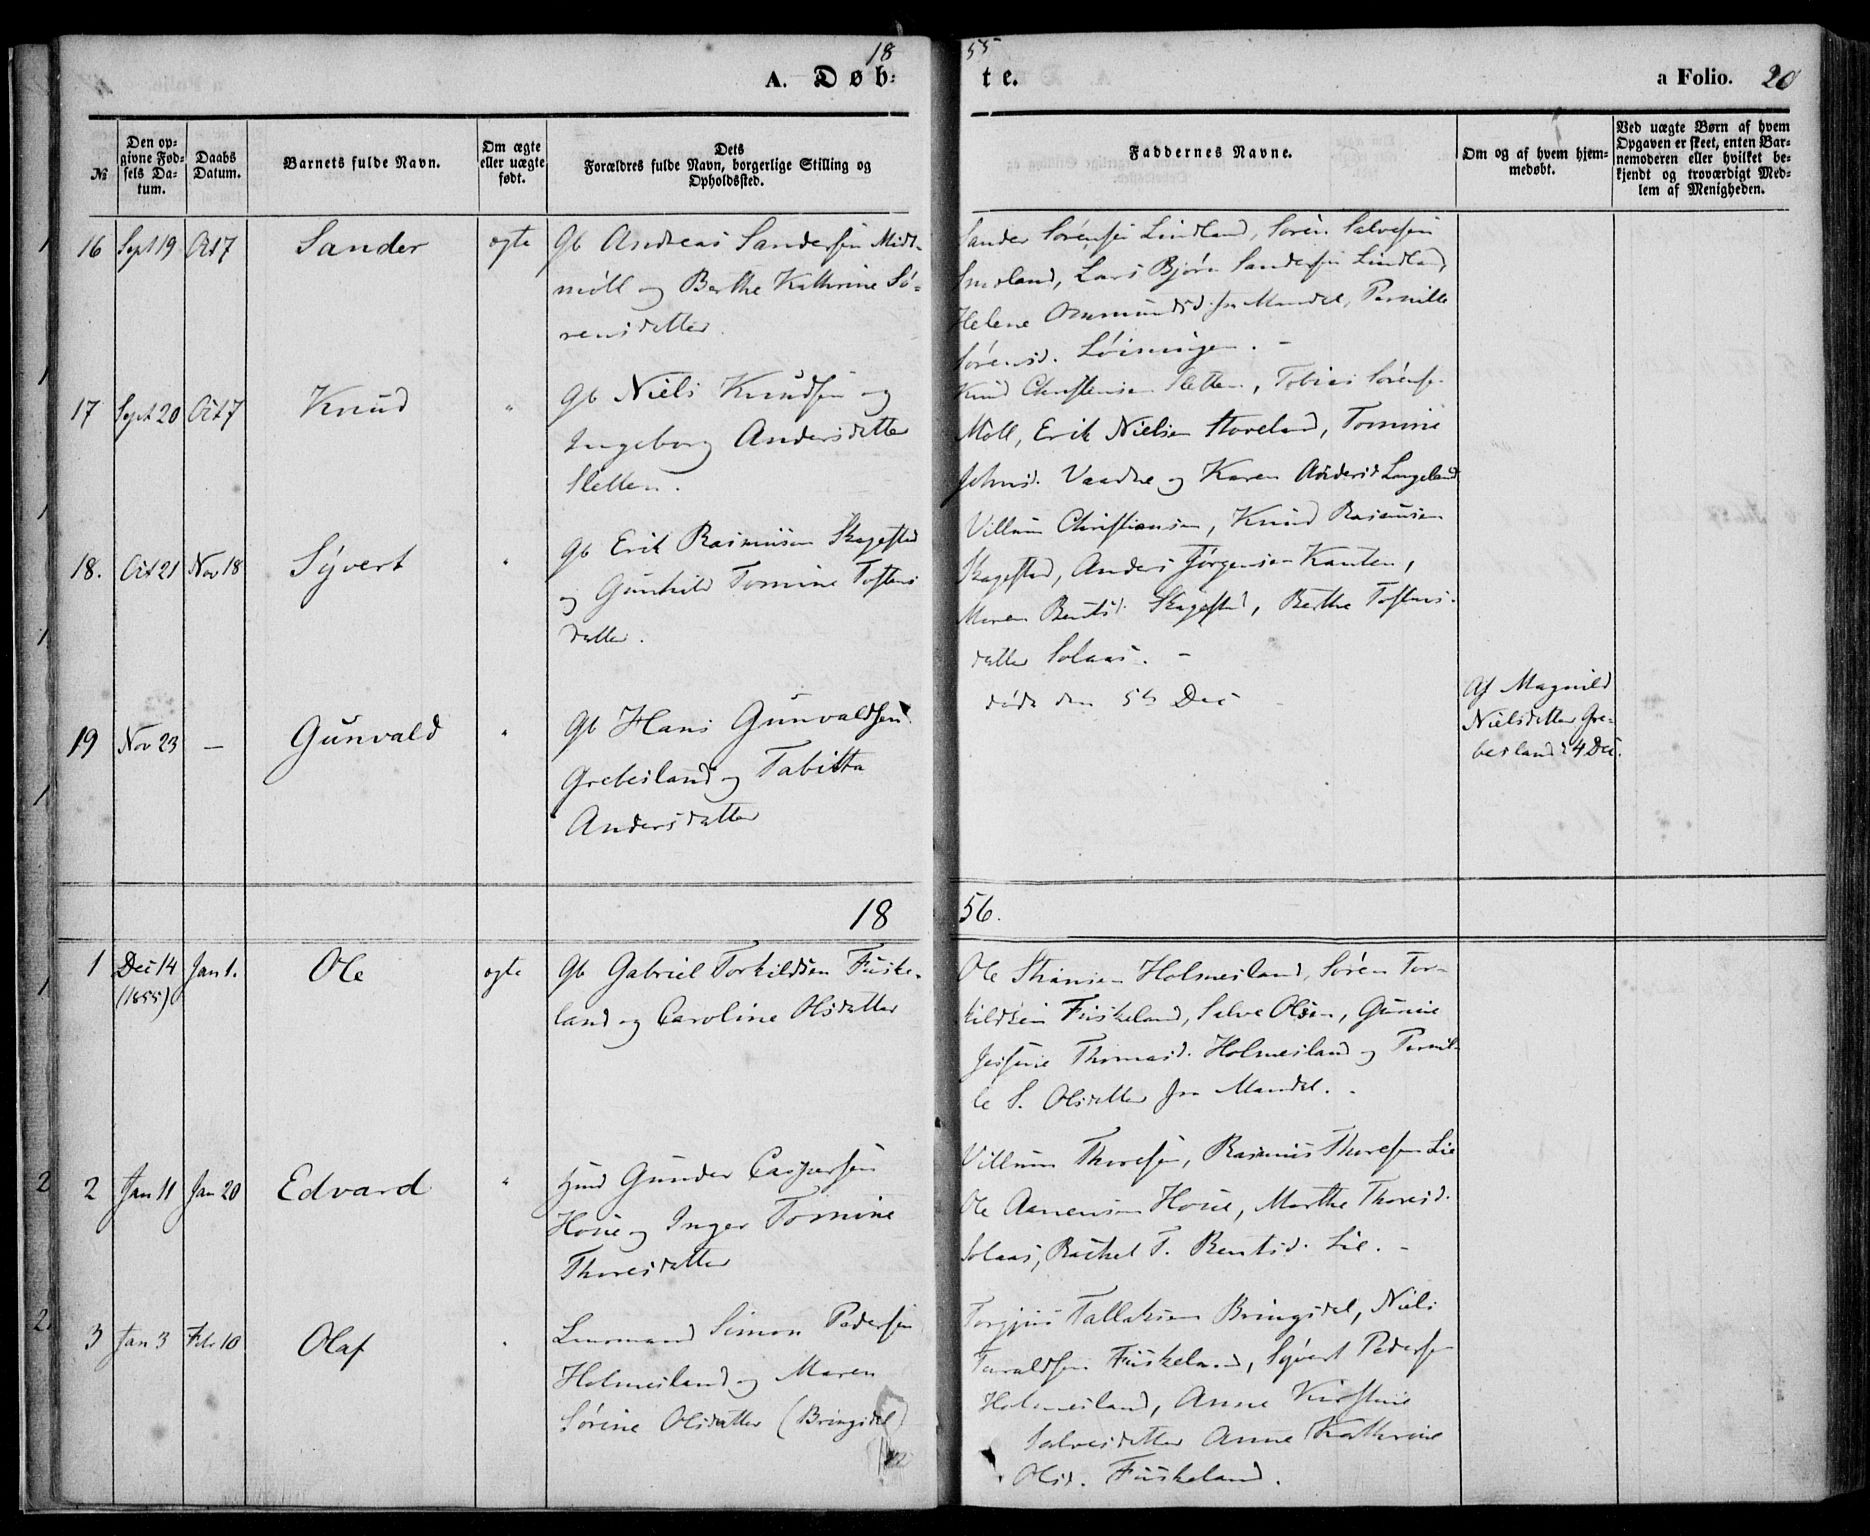 18 55
A. Døb: te. a Folio. 20
№
Den op-
givne Fød-
sels Da-
tum.
Daabs
Datum.
Barnets fulde Navn.
Om ægte
eller uægte
født.
Dets
Forældres fulde Navn, borgerlige Stilling og
Opholdssted.
Faddernes Navne.
Om og af hvem hjem-
medøbt.
Ved uægte Børn af hvem
Opgaven er skeet, enten Bar-
nemoderen eller hvilket be-
kjendt og troværdigt Med-
lem af Menigheden.
16 Sept 19 Oct 7 Sander ægte
Gb Andreas Sandersen Midt-
møll og Berthe Kathrine Sø-
rensdatter.
Sander Sørensen Lindland, Søren Salvesen
Lars Bjørn Sandersen Lindland
Helene Aamundsd. fra Mandal, Pernille
Sørensd. Løiningen. -
17 Sept 20 Oct 7 Knud "
Gb Niels Knudsen og
Ingeborg Andersdatter
Sletten.
Knud Christensen Sletten, Tobias Sørens.
Møll, Erik Nielsen Storeland, Tomine
Johnsd. Vaadne og Karen Andersd Langeland
18. Oct 21 Nov 18 Syvert "
Gb Erik Rasmusen Skagestad
og Gunhild Tomine Tostens
datter.
Villum Christiansen, Knud Rasmusen
Skagestad, Anders Jørgensen Kanten,
Maren Bentsd. Skagestad, Berthe Tostens-
datter Solaas. -
19 Nov 23 - Gunvald "
Gb Hans Gunvaldsen
Grebesland og Tabitta
Andersdatter
døde den 5te Dec
Af Magnild
Nielsdatter Gre-
besland 4 Dec.
18 56.
1 Dec 14 Jan 1. Ole ægte
(1855)
Gb Gabriel Torkildsen Fuske-
land og Caroline Olsdatter
Ole Holmesland, Søren Tor-
kildsen Fuskeland, Salve Olsen, Gunie
Thomasd. Holmesland og Pernil-
le S. Olsdatter fra Mandal. -
2 Jan 11 Jan 20 Edvard "
Hmd Gunder Caspersen
Houe og Inger Tomine
Thoresdatter
Villum Thoresen, Rasmus Thoresen Lie
Ole Aanensen Houe, Marthe Thoresd.
Solaas, Rachel T. Bentsd. Lie. -
3 Jan 3 Febr 10 Olaf "
Lensmand Simon Pedersen
Holmesland og Maren
Sørine Olsdatter (Bringsdal)
Torjus Tallaksen Bringsdal, Niels
Taraldsen Fuskeland, Syvert Peders.
Holmesland, Anne Kirstine
Salvesdatter Anne Kathrine
Olsd. Fuskeland.